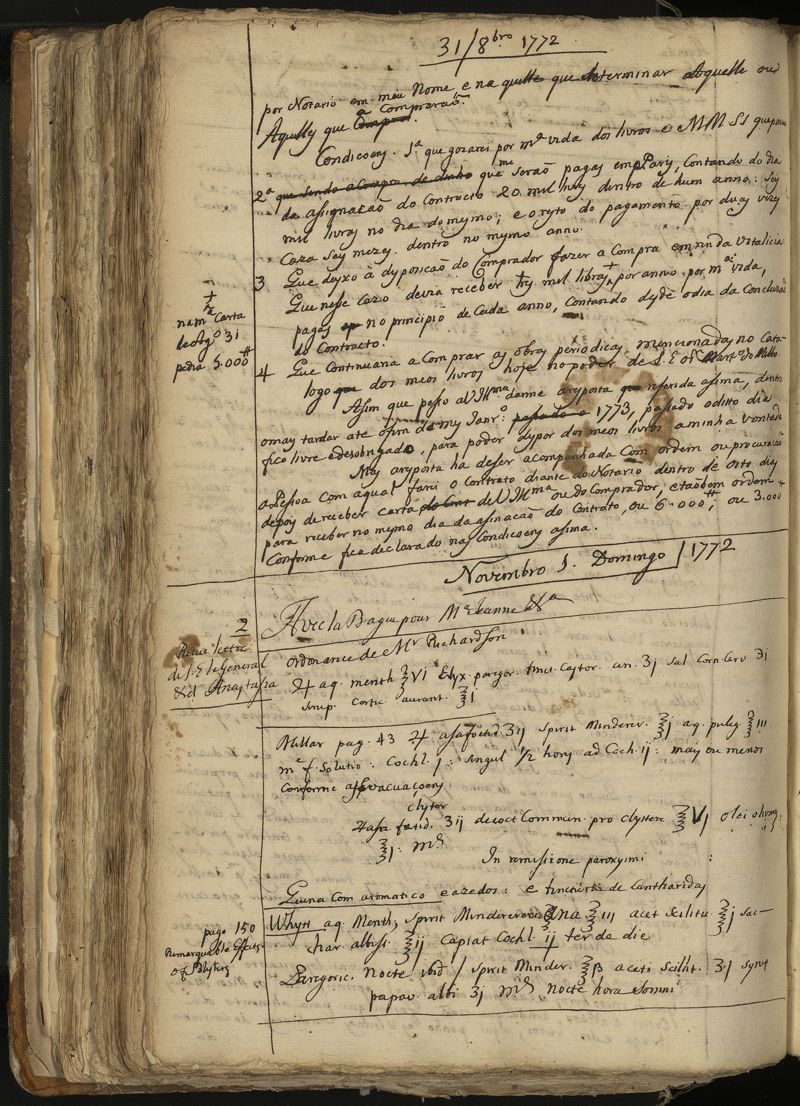 31/8bro 1772
por Notario em meu Nome e na quelle que determinar Aquelle ou
Aquelly que a Comprarão.
Condicoeny. 1a que gozarei por ma vida dos livros e MM SS que
2a que sendo a Compra de dinho que me serão pagas em Pariz, Contando do dia
da asignacão do Contracto 20 mil livry dentro de hum anno: Sey
mil livras no dia do mesmo; e o resto do pagamento por duas vezes
Caza Sey mezes. dentro no mesmo anno.
3. Que deyxo à dysposicão do Comprador fazer a Compra em rinda Vitalicia
Que nesse Cazo devia receber try mil libras, por anno por ma vida,
pagas no principio de Cada anno, Contando desde o dia da Concluzão
do Contracto.
+
na m Carta
de Agto 31
pedia 5.000tt
4 Que Continuaria a Comprar as obras periodicas mencionadas no Cata-
logo dos meos livros hoje no poder de S. E. o
Asim que pesso a V Illma darme a resposta que referida asima, dentro
o may tardar até o fim de my Janro. passado o 1773, passado o ditto dia
fico livre e desobrigado, para poder dispor dos meos livros a minha Vontade
May a resposta ha de ser acompanhada Com ordem ou procuração
a Pessoa com a qual farei o Contrato diante do Notario dentro de oito dias
depoy de receber carta de V Illma ou do Comprador, e taõbem ordem
para receber no mesmo dia da asinacão do Contrato, ou 6.000tt; ou 3.000
Conforme fica declarado nas Condicoens asima.
Novembro 1. Domingo / 1772
2
Recue lectre
de S. E. le General
& d'Anastasia
Avec la Bague pour Mr Jeanne &a
ordonance de Mr Richardson
♃ aq. menth ℥VI Elyx. paregor. tinct. Castor. an. ʒj sal Corn. Cerv ℈j
sirup. Cortic aurant. ℥j
Millar pag. 43 ♃ asafoetid ʒij spirit Minderer. ℥j aq. puleg. ℥iii
me f. Solutio: Cochl. j: singul 1/2 hory ad Coch. ij: may ou menos
Conforme as Evacuaçoens
Clyster
♃ asa foetid. ʒij decoct Commun. pro clystere ℥Vj olei olivary:
℥j: Ms
In remissione paroxysmi
Quina Com aromatico e azedos: e tinctura de Cantharidas
pago 150
Remarquable effects
of Blysters
Whytt aq. Menth, spirit Mindereri Ana ℥iii acet Scilliti ℥j sac-
char. albiss. ℥ij Capiat Cochl. ij ter de die
Paregoric. nocte ibid / spirit Minder. ℥β aceti Scillit. ʒj syrup
papav. albi ʒj Ms nocte hora Somni